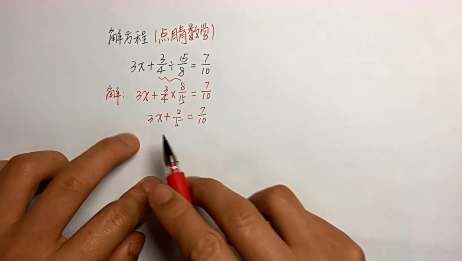 解方程 (点睛数学)
3x+3/4÷15/8=7/10
解: 3x+3/4×8/15=7/10
3x+2/5=7/10